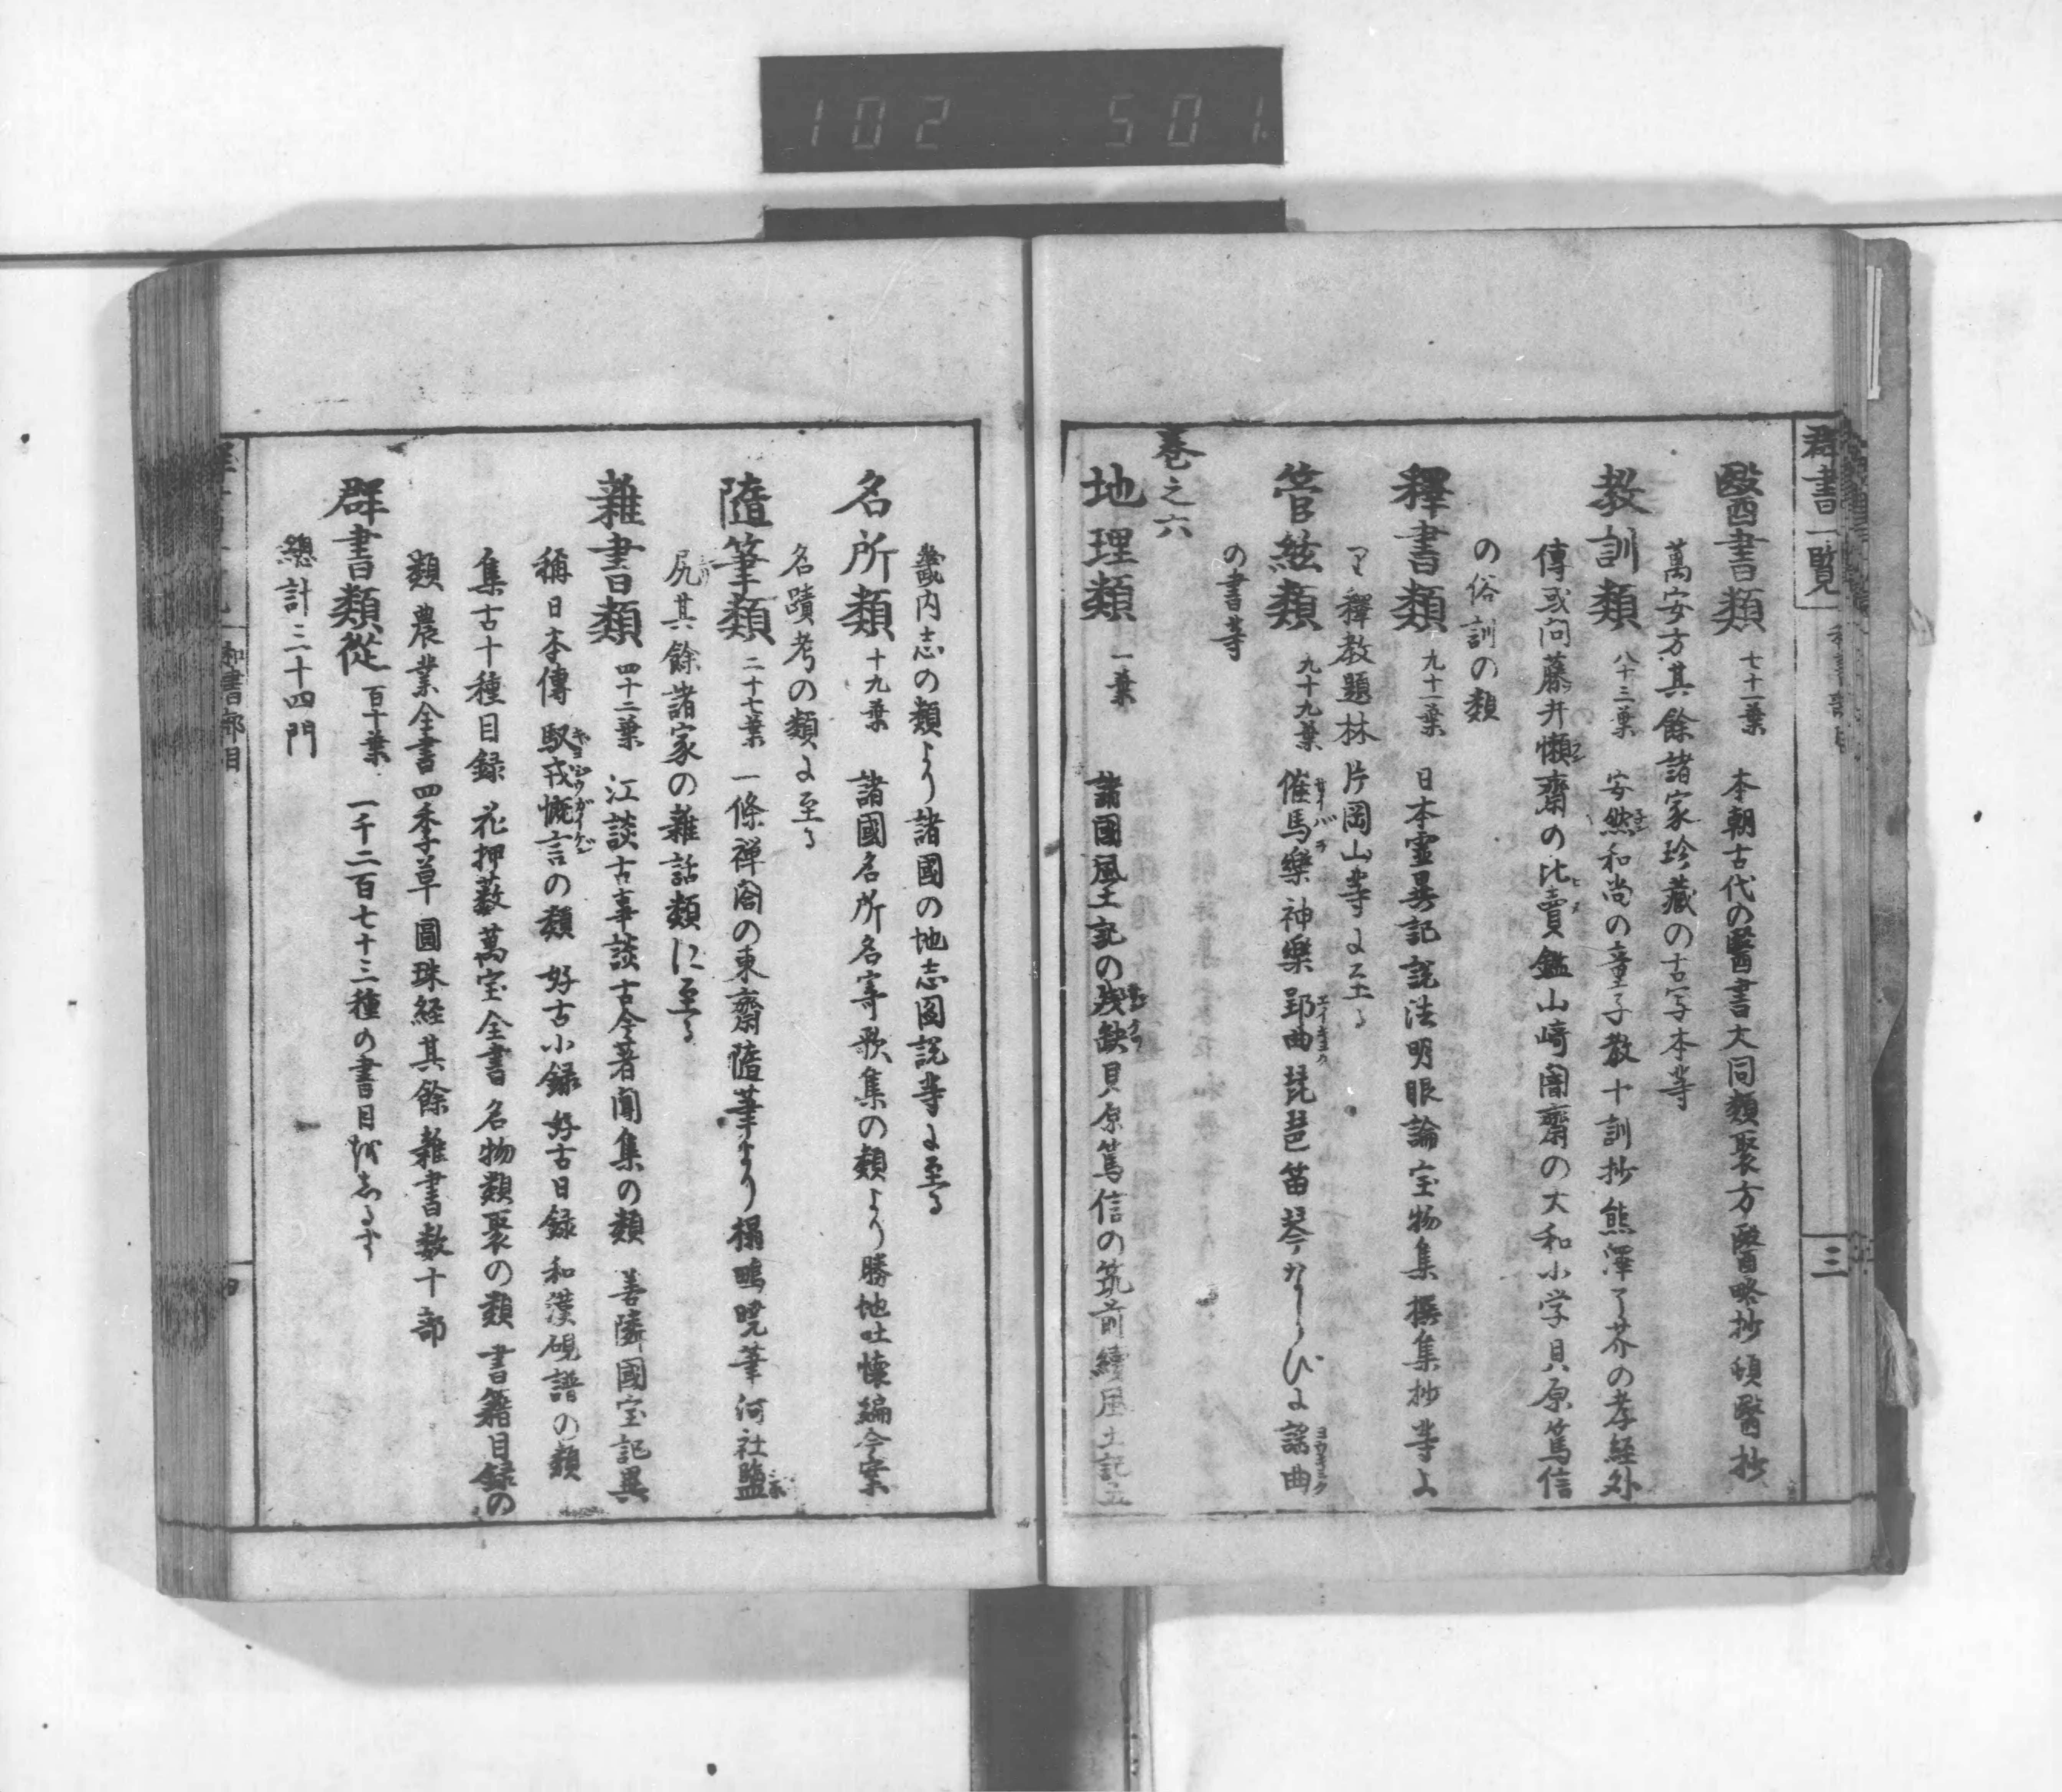 102 501
群書一覧
三
醫書類 七十一葉 本朝古代の醫書大同類聚方醫略抄頓醫抄
萬安方其餘諸家珍藏の古写本等
教訓類 八十三葉 安然和尚の童子教十訓抄熊澤了芥の孝経外
傳或问藤井懶齋の比賣鑑山﨑闇齋の大和小学貝原篤信
の俗訓の類
釋書類 九十一葉 日本霊異記説法明眼論宝物集撰集抄等よ
り釋教題林片岡山等に至る
管絃類 九十九葉 催馬樂神樂郢曲琵琶笛琴ならびに謡曲
の書等
巻之六
地理類 一葉 諸國風土記の残缺貝原篤信の筑前續風土記五
畿内志の類より諸國の地志圖説等に至る
名所類 十九葉 諸國名所名寄歌集の類より勝地吐懐編今案
名蹟考の類に至る
隨筆類 二十七葉 一條禅閤の東齋隨筆より榻鴫暁筆河社鹽
尻其餘諸家の雜話類に至る
雜書類 四十二葉 江談古事談古今著聞集の類 善隣國宝記異
稱日本傳馭戎慨言の類 好古小録好古日録和漢硯譜の類
集古十種目録花押藪萬宝全書名物類聚の類 書籍目録の
類 農業全書四季草圓珠経其餘雜書数十部
群書類從 百十葉 一千二百七十三種の書目をしるす
總計三十四門
和書部目